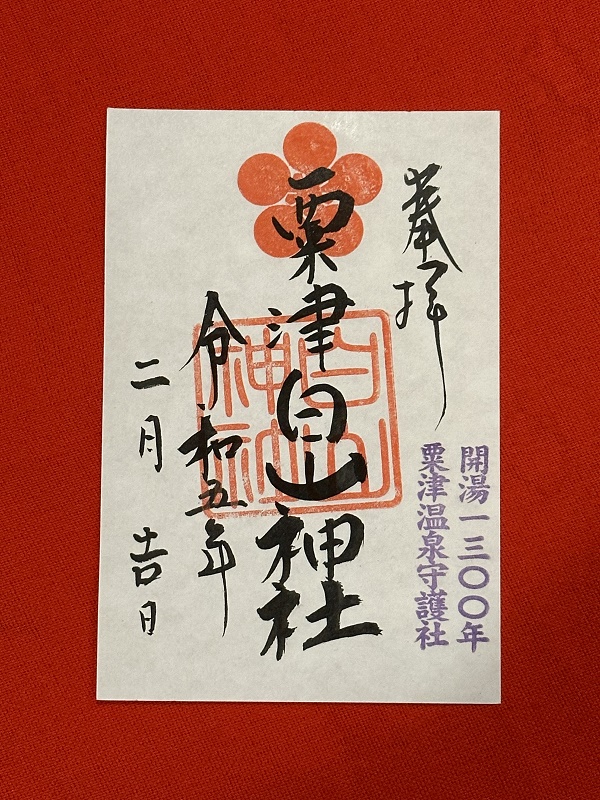 奉拝
開湯一三〇〇年
粟津温泉守護社
粟津白山神社
白山
神社
令和五年
二月 吉日